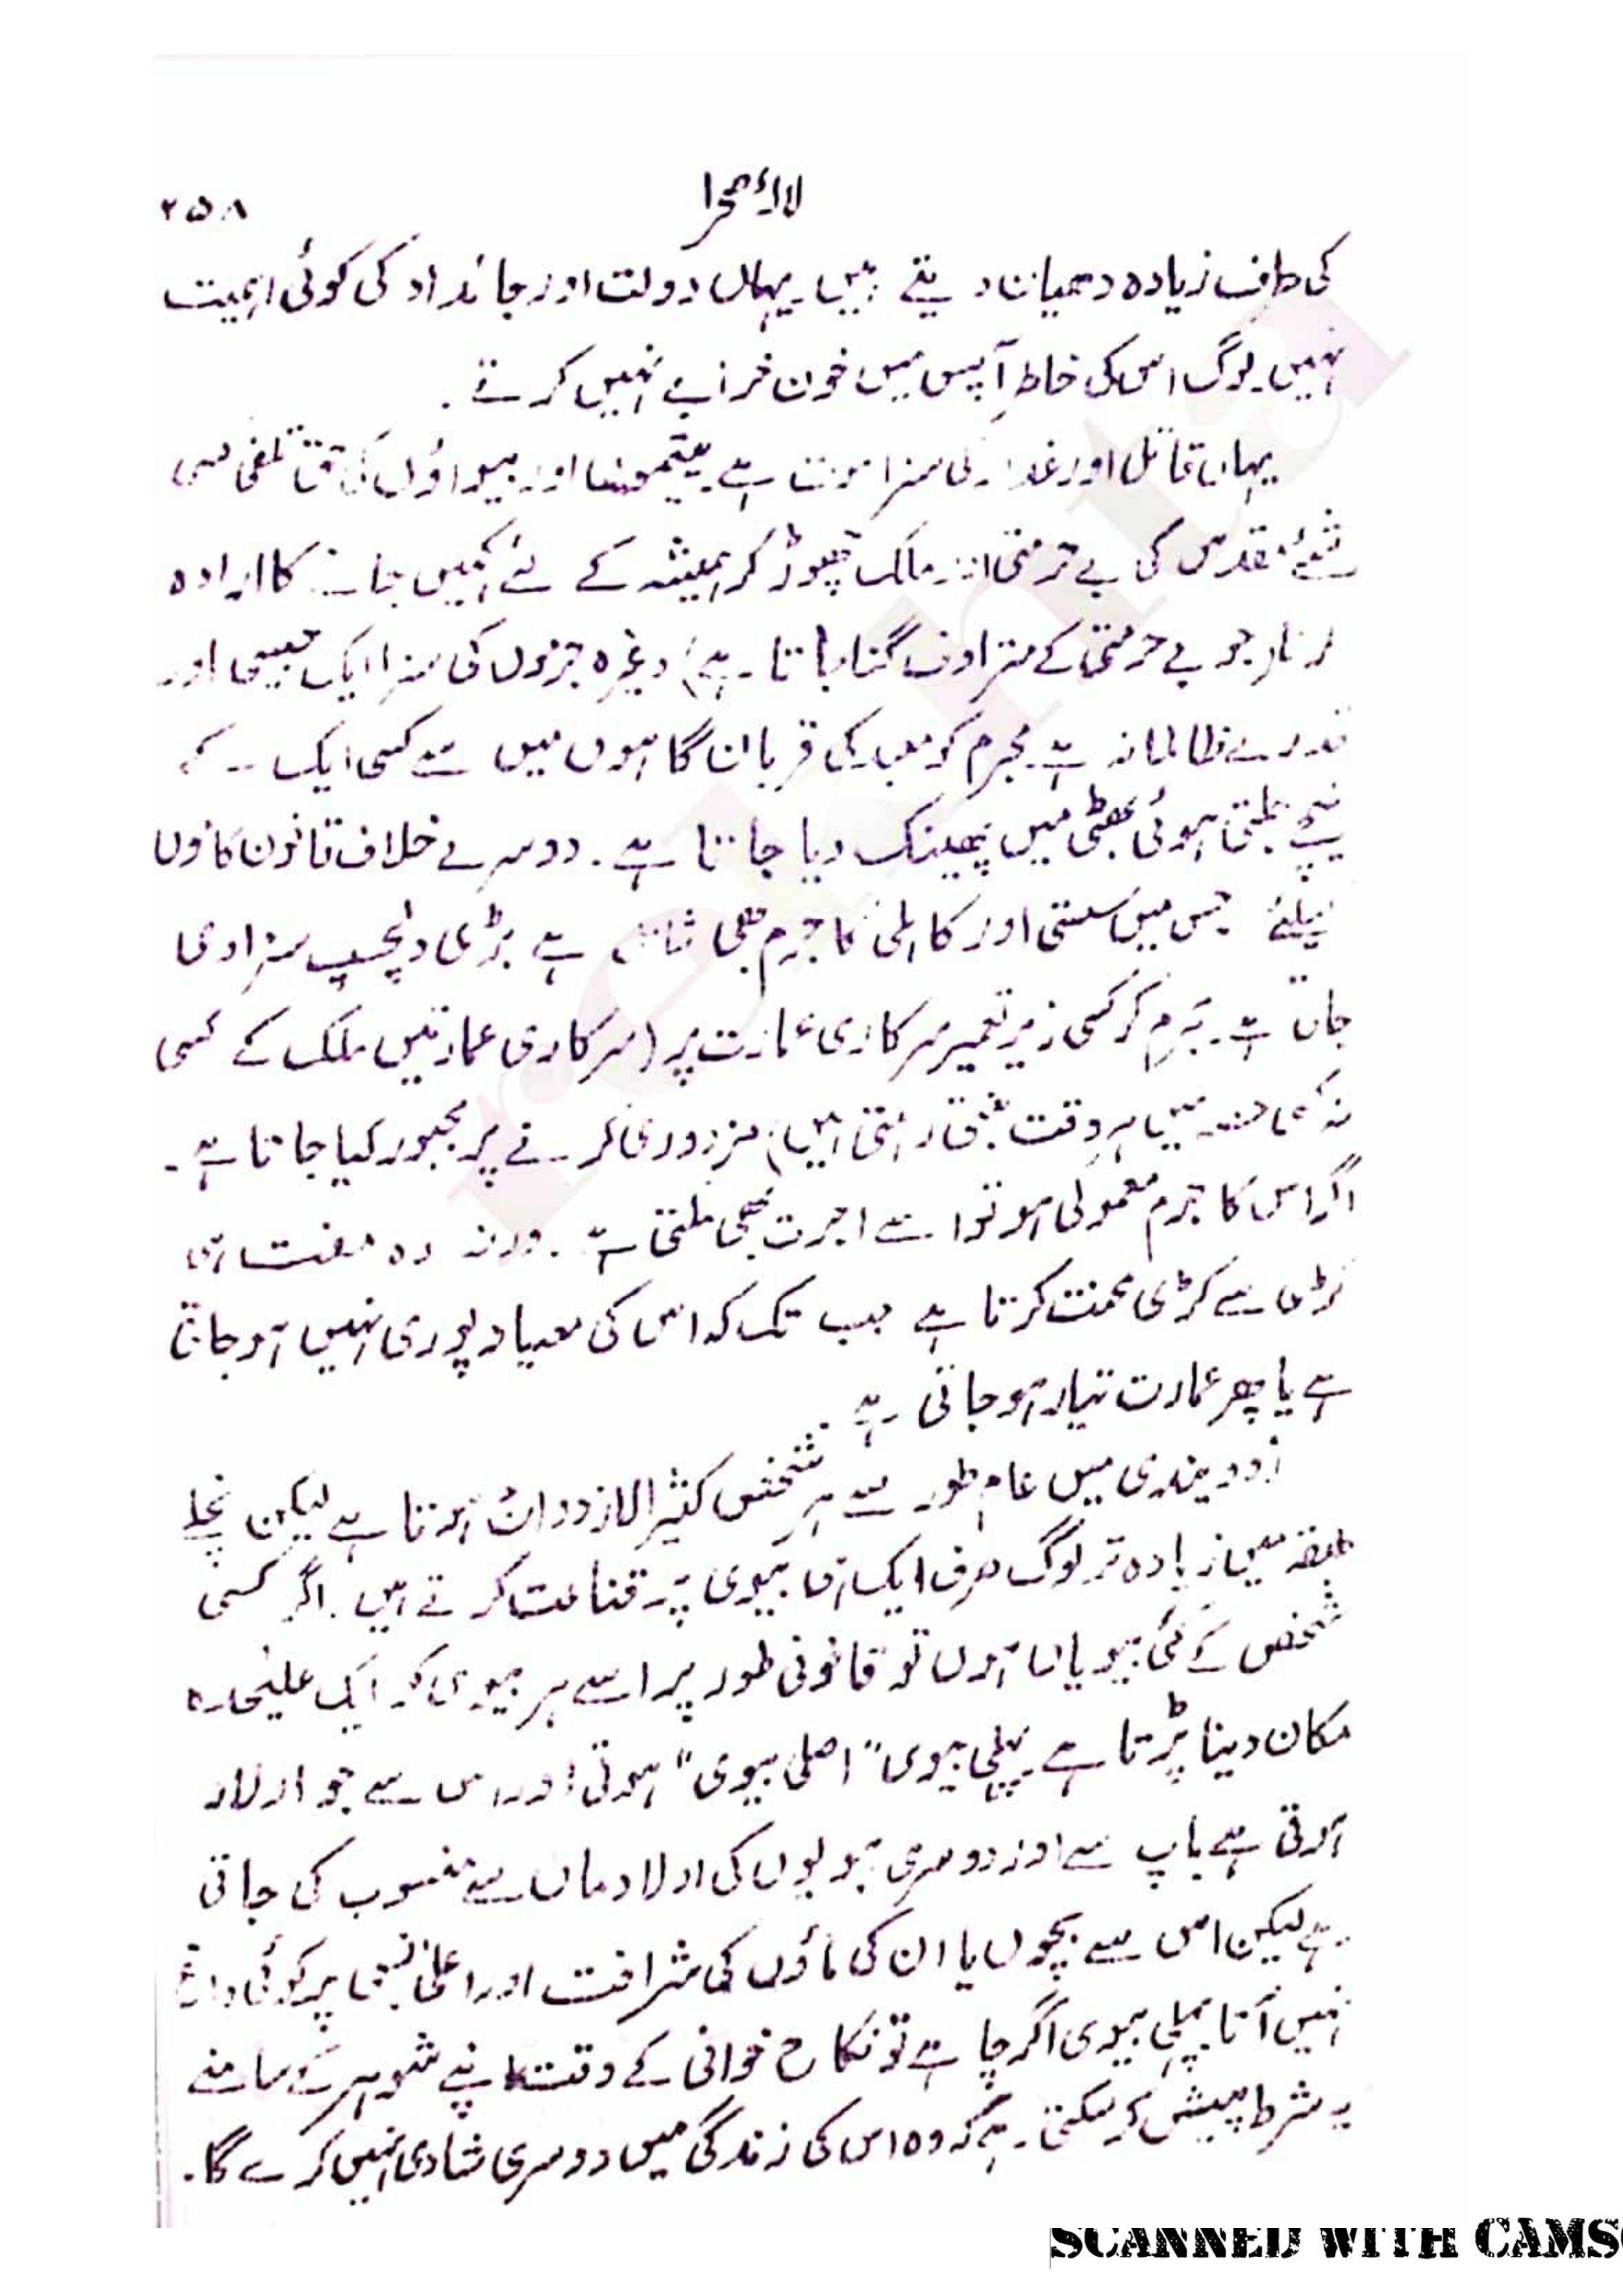 لالۂ صحرا
۲۵۸
کی طرف زیادہ دھیان دیتے ہیں۔ یہاں دولت اور جائداد کی کوئی اہمیت
نہیں۔ لوگ اس کی خاطر آپس میں خون خرابے نہیں کرتے۔
یہاں قاتل اور غدار کی سزا موت ہے۔ یتیموں اور بیواؤں کی حق تلفی کسی
شئے مقدس کی بے حرمتی اور ملک چھوڑ کر ہمیشہ کے لئے کہیں جانے کا ارادہ
کرنا (جو بے حرمتی کے مترادف گنا جاتا ہے) وغیرہ جرموں کی سزا ایک جیسی اور
قدرے ظالمانہ ہے۔ مجرم کو معبد کی قربان گاہوں میں سے کسی ایک کے
نیچے جلتی ہوئی بھٹی میں پھینک دیا جاتا ہے۔ دوسرے خلاف قانون کاموں
کیلئے جس میں سستی اور کاہلی کا جرم بھی شامل ہے بڑی دلچسپ سزا دی
جاتی ہے۔ مجرم کو کسی زیر تعمیر سرکاری عمارت پر (سرکاری عمارتیں ملک کے کسی
نہ کسی حصہ میں ہر وقت بنتی رہتی ہیں) مزدوری کرنے پر مجبور کیا جاتا ہے۔
اگر اس کا جرم معمولی ہو تو اسے اجرت بھی ملتی ہے۔ ورنہ وہ مفت ہی
کڑی سے کڑی محنت کرتا ہے جب تک کہ اس کی میعاد پوری نہیں ہو جاتی
ہے یا پھر عمارت تیار ہو جاتی ہے۔
میں عام طور سے ہر شخص کثیر الازدواج ہوتا ہے لیکن نچلے
طبقہ میں زیادہ تر لوگ صرف ایک ہی بیوی پر قناعت کرتے ہیں۔ اگر کسی
شخص کے کئی بیویاں ہوں تو قانونی طور پر اسے ہر بیوی کو ایک علیٰحدہ
مکان دینا پڑتا ہے۔ پہلی بیوی "اصلی بیوی" ہوتی اور اس سے جو اولاد
ہوتی ہے باپ سے اور دوسری بیویوں کی اولاد ماں سے منسوب کی جاتی
ہے لیکن اس سے بچوں یا ان کی ماؤں کی شرافت اور اعلیٰ نسبی پر کوئی داغ
نہیں آتا۔ پہلی بیوی اگر چاہے تو نکاح خوانی کے وقت اپنے شوہر کے سامنے
یہ شرط پیش کر سکتی ہے کہ وہ اس کی زندگی میں دوسری شادی نہیں کرے گا۔
rekhta
SCANNED WITH CAMS